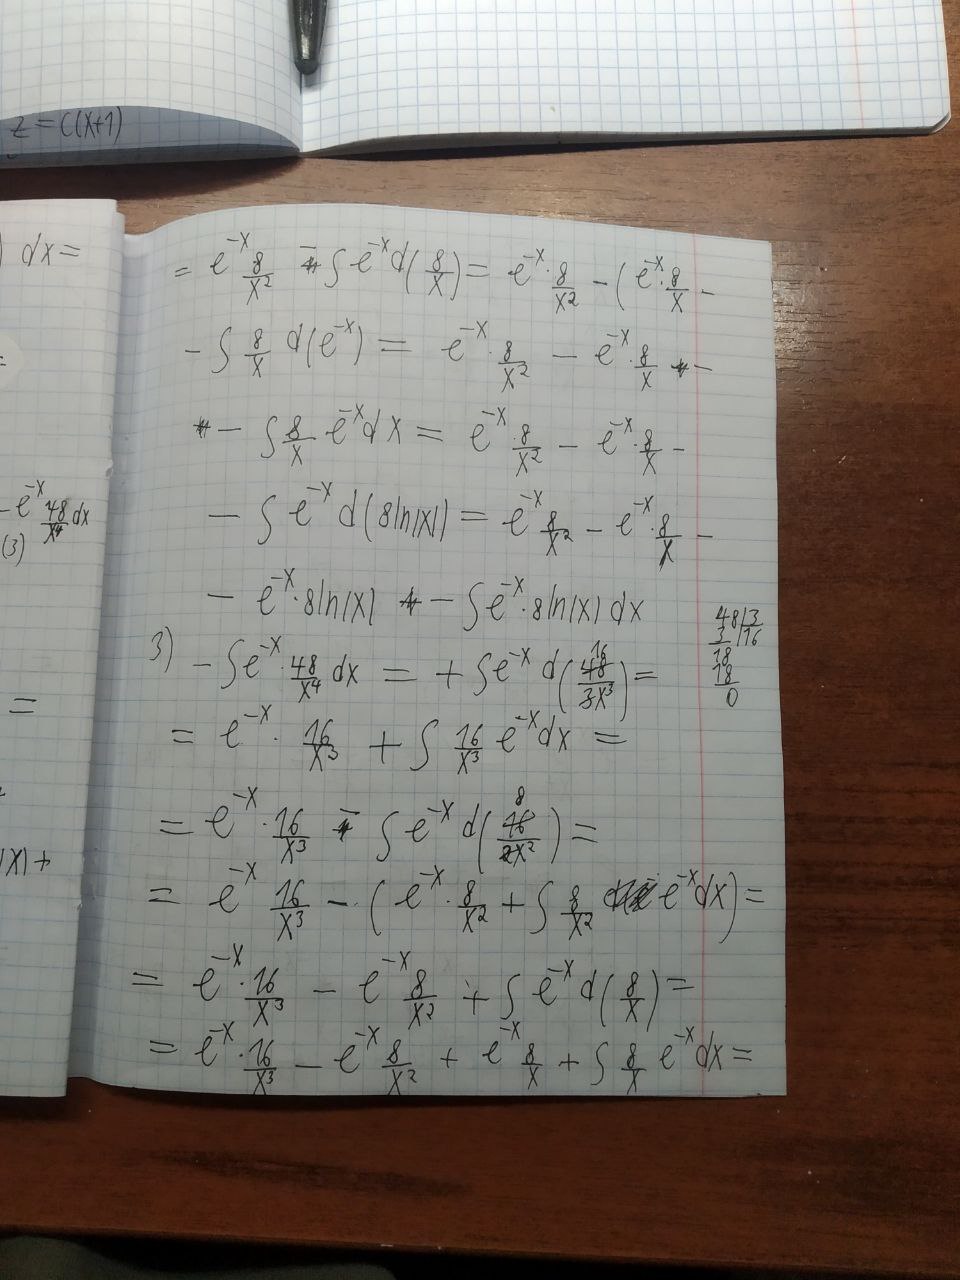 z = C(x+1)
) dx =
= e^{-x} \frac{8}{x^2} - ∫ e^{-x} d(\frac{8}{x}) = e^{-x} · \frac{8}{x^2} - (e^{-x} · \frac{8}{x} -
- ∫ \frac{8}{x} d(e^{-x}) = e^{-x} · \frac{8}{x^2} - e^{-x} · \frac{8}{x} -
- ∫ \frac{8}{x} e^{-x} dx = e^{-x} · \frac{8}{x^2} - e^{-x} · \frac{8}{x} -
- e^{-x} \frac{48}{x^4} dx
(3)
- ∫ e^{-x} d(8ln|x|) = e^{-x} \frac{8}{x^2} - e^{-x} · \frac{8}{x} -
- e^{-x} · 8ln|x| - ∫ e^{-x} · 8ln|x| dx
3) - ∫ e^{-x} · \frac{48}{x^4} dx = + ∫ e^{-x} d(\frac{16}{x^3}) =
48|3
3|16
18
18
0
=
= e^{-x} · \frac{16}{x^3} + ∫ \frac{16}{x^3} e^{-x} dx =
= e^{-x} · \frac{16}{x^3} - ∫ e^{-x} d(\frac{8}{x^2}) =
|x| +
= e^{-x} \frac{16}{x^3} - (e^{-x} · \frac{8}{x^2} + ∫ \frac{8}{x^2} e^{-x} dx) =
= e^{-x} · \frac{16}{x^3} - e^{-x} \frac{8}{x^2} + ∫ e^{-x} d(\frac{8}{x}) =
= e^{-x} · \frac{16}{x^3} - e^{-x} \frac{8}{x^2} + e^{-x} \frac{8}{x} + ∫ \frac{8}{x} e^{-x} dx =